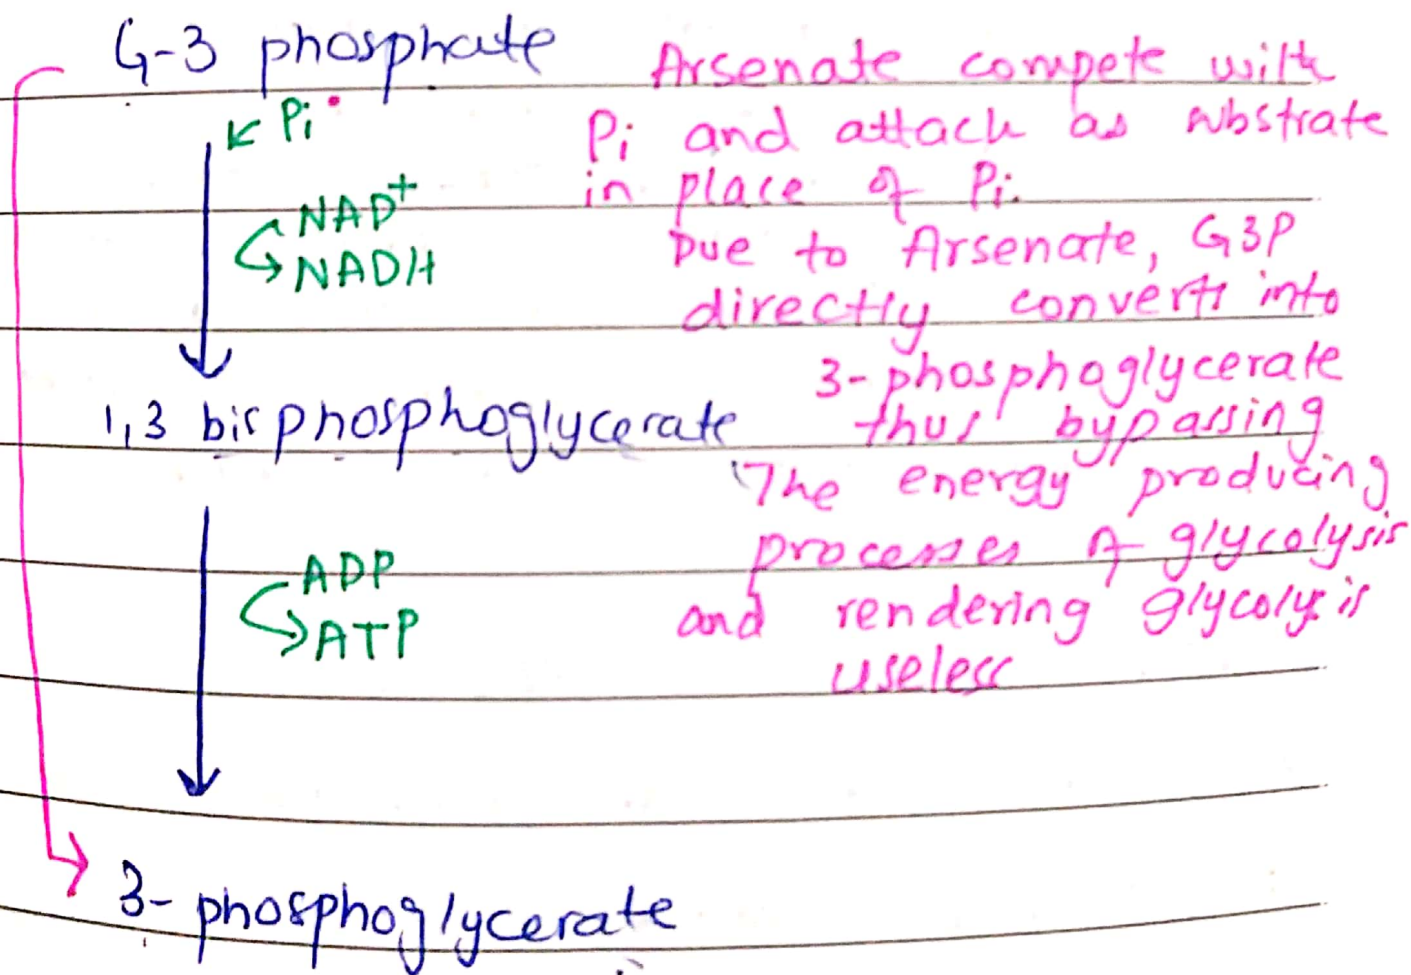 G-3 phosphate
Pi
NAD+
NADH
1,3 bisphosphoglycerate
ADP
ATP
3-phosphoglycerate
Arsenate compete with
Pi and attach as substrate
in place of Pi.
Due to Arsenate, G3P
directly converts into
3-phosphoglycerate
thus bypassing
The energy producing
processes of glycolysis
and rendering glycolysis
useless